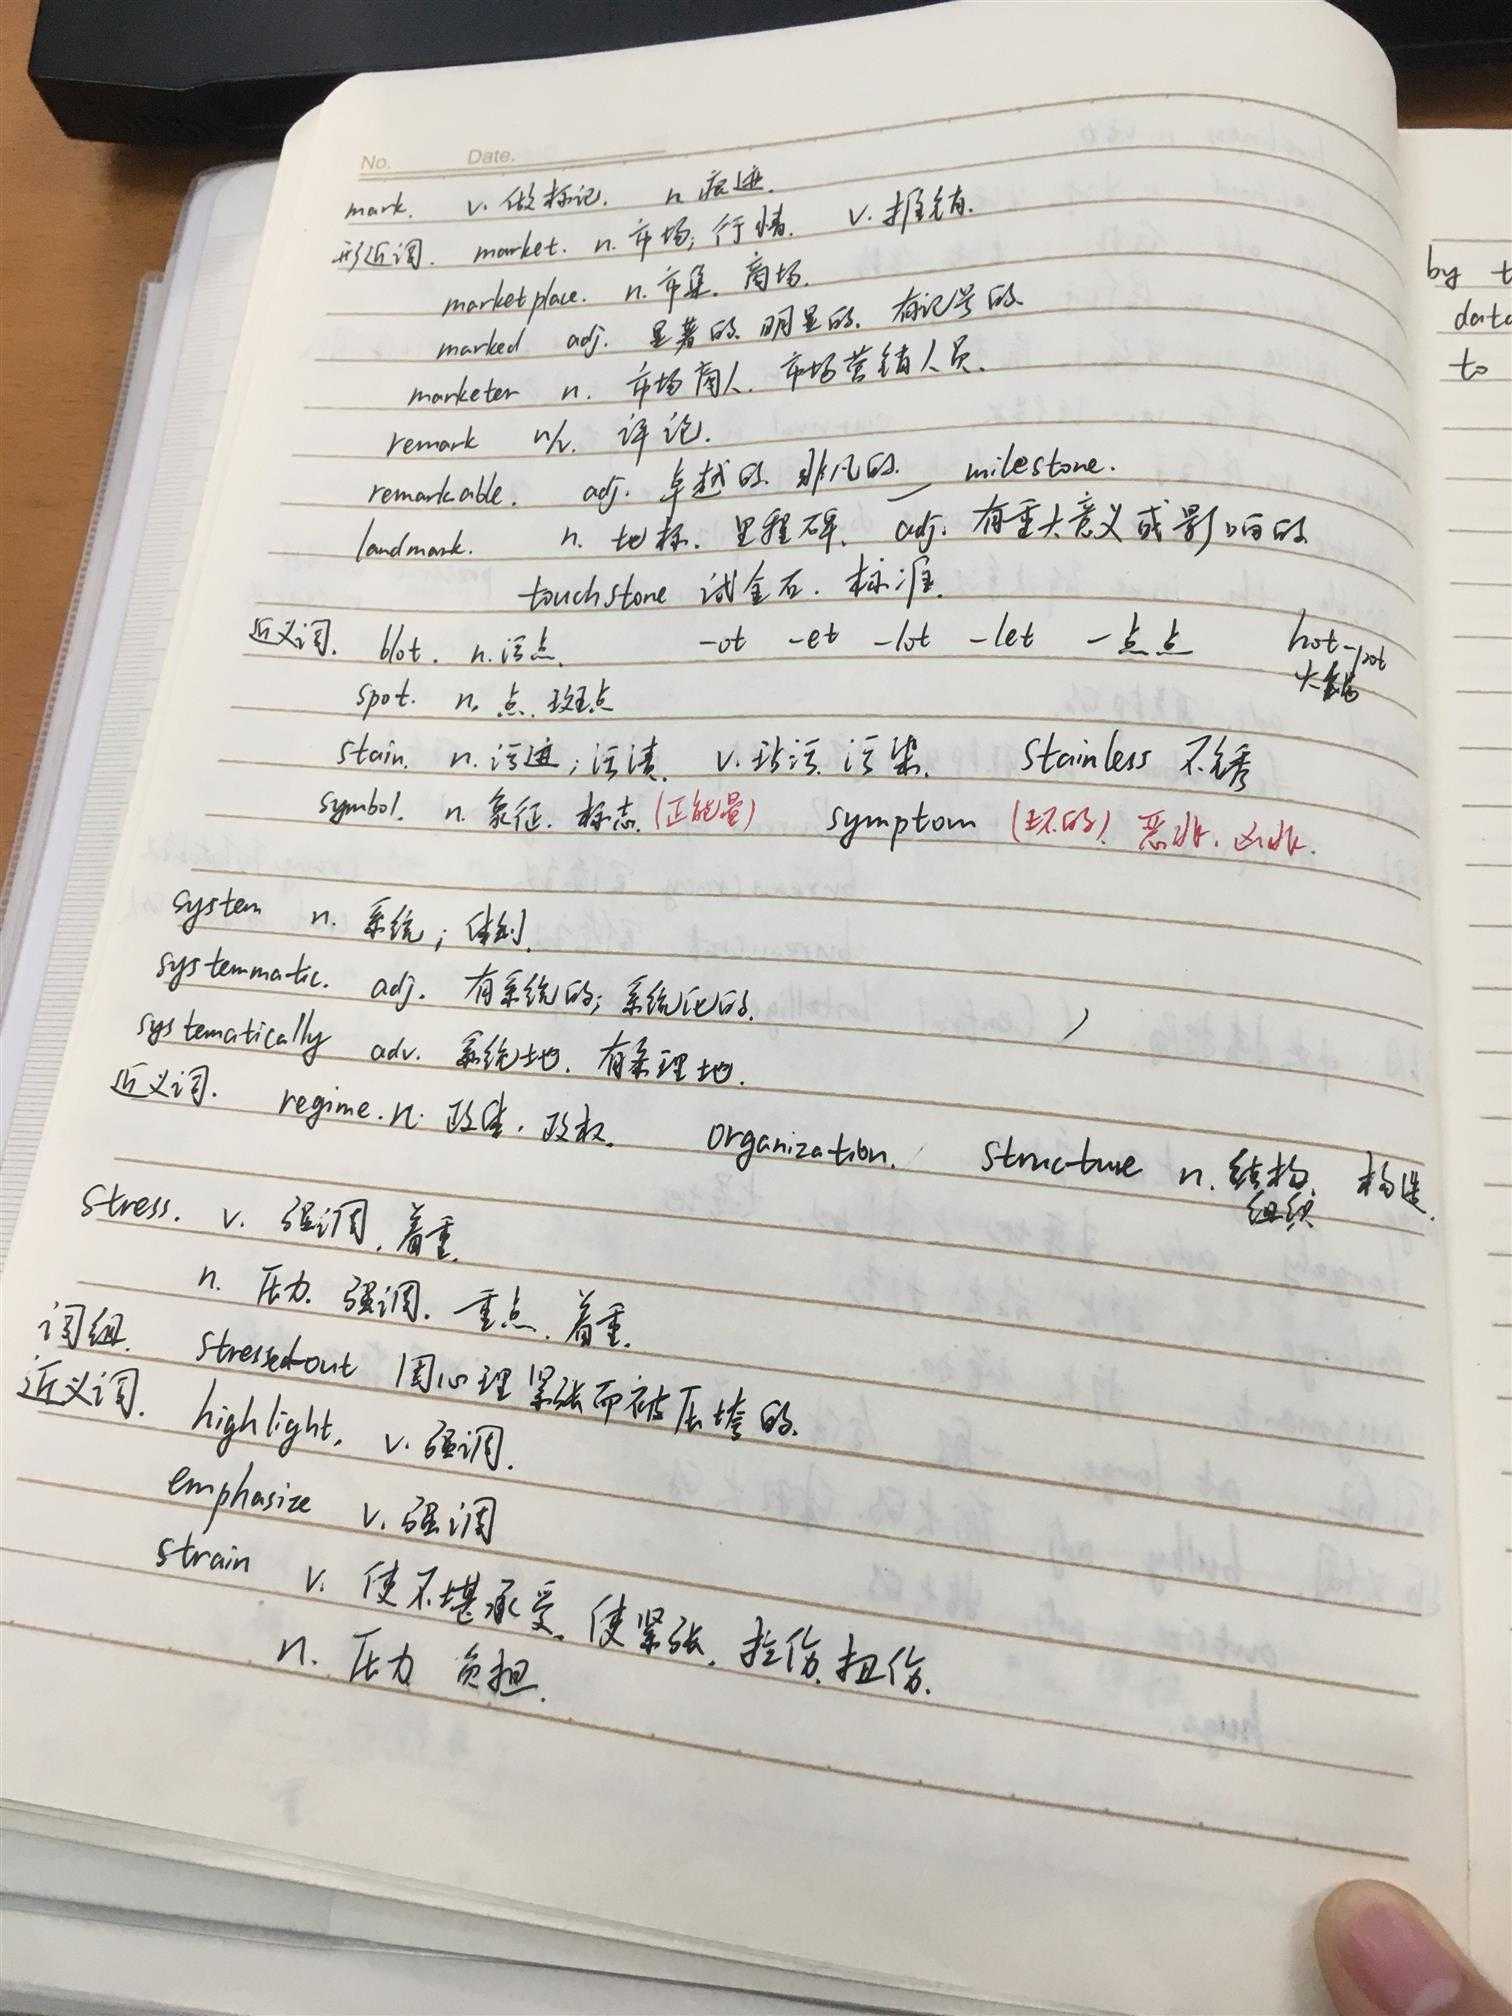 No. Date.
mark. v. 做标记. n. 痕迹.
形近词. market. n. 市场; 行情. v. 推销.
marketplace. n. 市集. 商场.
marked adj. 显著的. 明显的. 有记号的.
marketer n. 市场商人. 市场营销人员.
remark n/v. 评论.
remarkable. adj. 卓越的. 非凡的. milestone.
landmark. n. 地标. 里程碑. adj. 有重大意义或影响的
touchstone 试金石. 标准.
近义词. blot. n. 污点. -ot -et -lot -let 一点点 hot-pot
火锅
spot. n. 点. 斑点
stain. n. 污迹; 污渍. v. 玷污. 污染. stainless 不锈
symbol. n. 象征. 标志. (正能量) symptom (坏的) 恶兆. 凶兆.
system n. 系统; 体制.
systemmatic. adj. 有系统的; 系统化的.
systematically adv. 系统地. 有条理地.
近义词. regime. n. 政体. 政权. organization. structure n. 结构. 构造.
组织
stress. v. 强调. 着重.
n. 压力. 强调. 重点. 着重.
词组. stressed-out 因心理紧张而被压垮的.
近义词. highlight. v. 强调.
emphasize v. 强调
strain v. 使不堪承受. 使紧张. 拉伤. 扭伤.
n. 压力 负担.
by
data
to